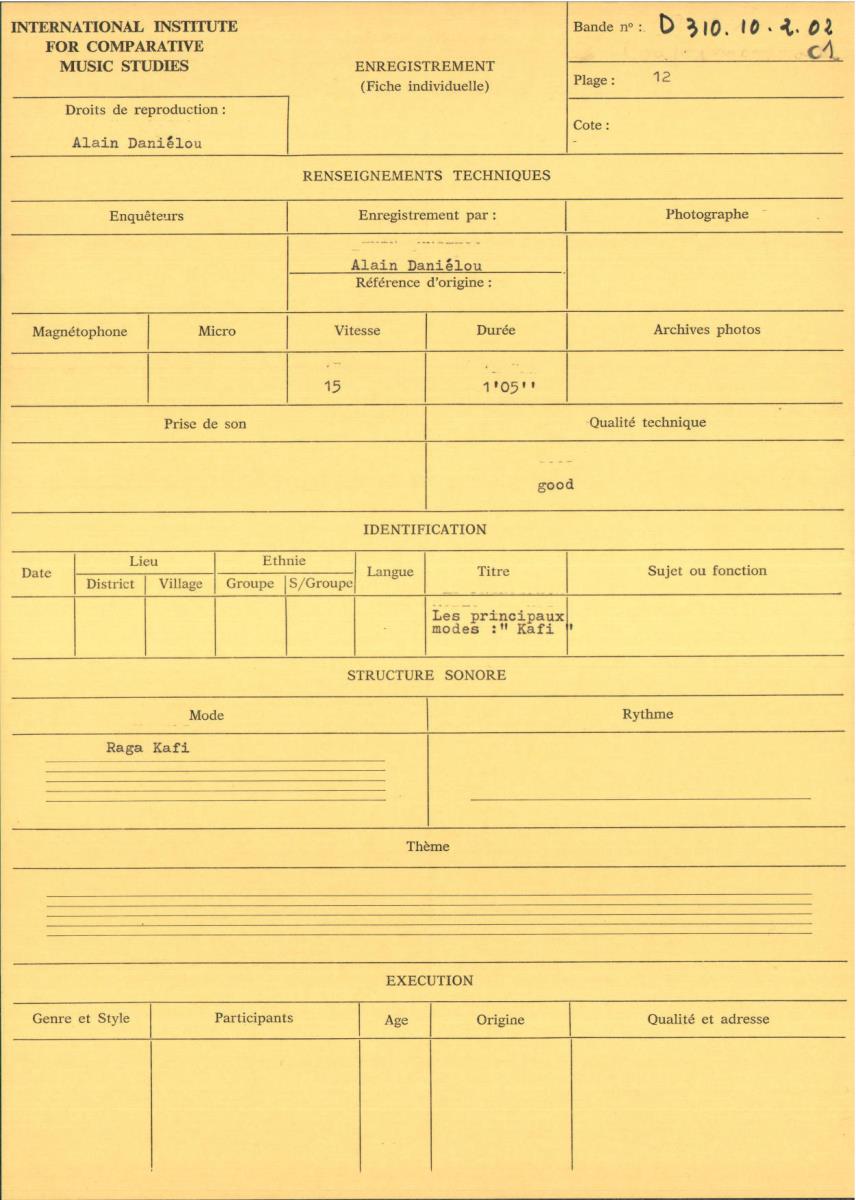 INTERNATIONAL INSTITUTE
FOR COMPARATIVE
MUSIC STUDIES
ENREGISTREMENT
(Fiche individuelle)
Bande nº : D 310. 10. 2. 02
C1
Plage : 12
Cote :
Droits de reproduction :
Alain Daniélou
RENSEIGNEMENTS TECHNIQUES
Enquêteurs
Enregistrement par :
Photographe
Alain Daniélou
Référence d'origine :
Magnétophone
Micro
Vitesse
Durée
Archives photos
15
1'05''
Prise de son
Qualité technique
good
IDENTIFICATION
Date
Lieu
Ethnie
Langue
Titre
Sujet ou fonction
District
Village
Groupe
S/Groupe
Les principaux
modes :" Kafi "
STRUCTURE SONORE
Mode
Rythme
Raga Kafi
Thème
EXECUTION
Genre et Style
Participants
Age
Origine
Qualité et adresse